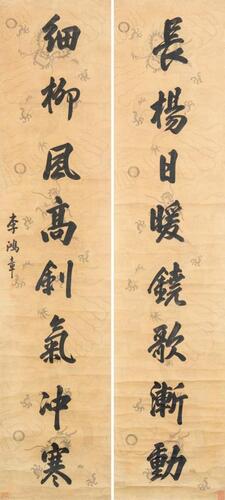 長楊日暖鐃歌漸動
細柳風高劍氣冲寒
李鴻章